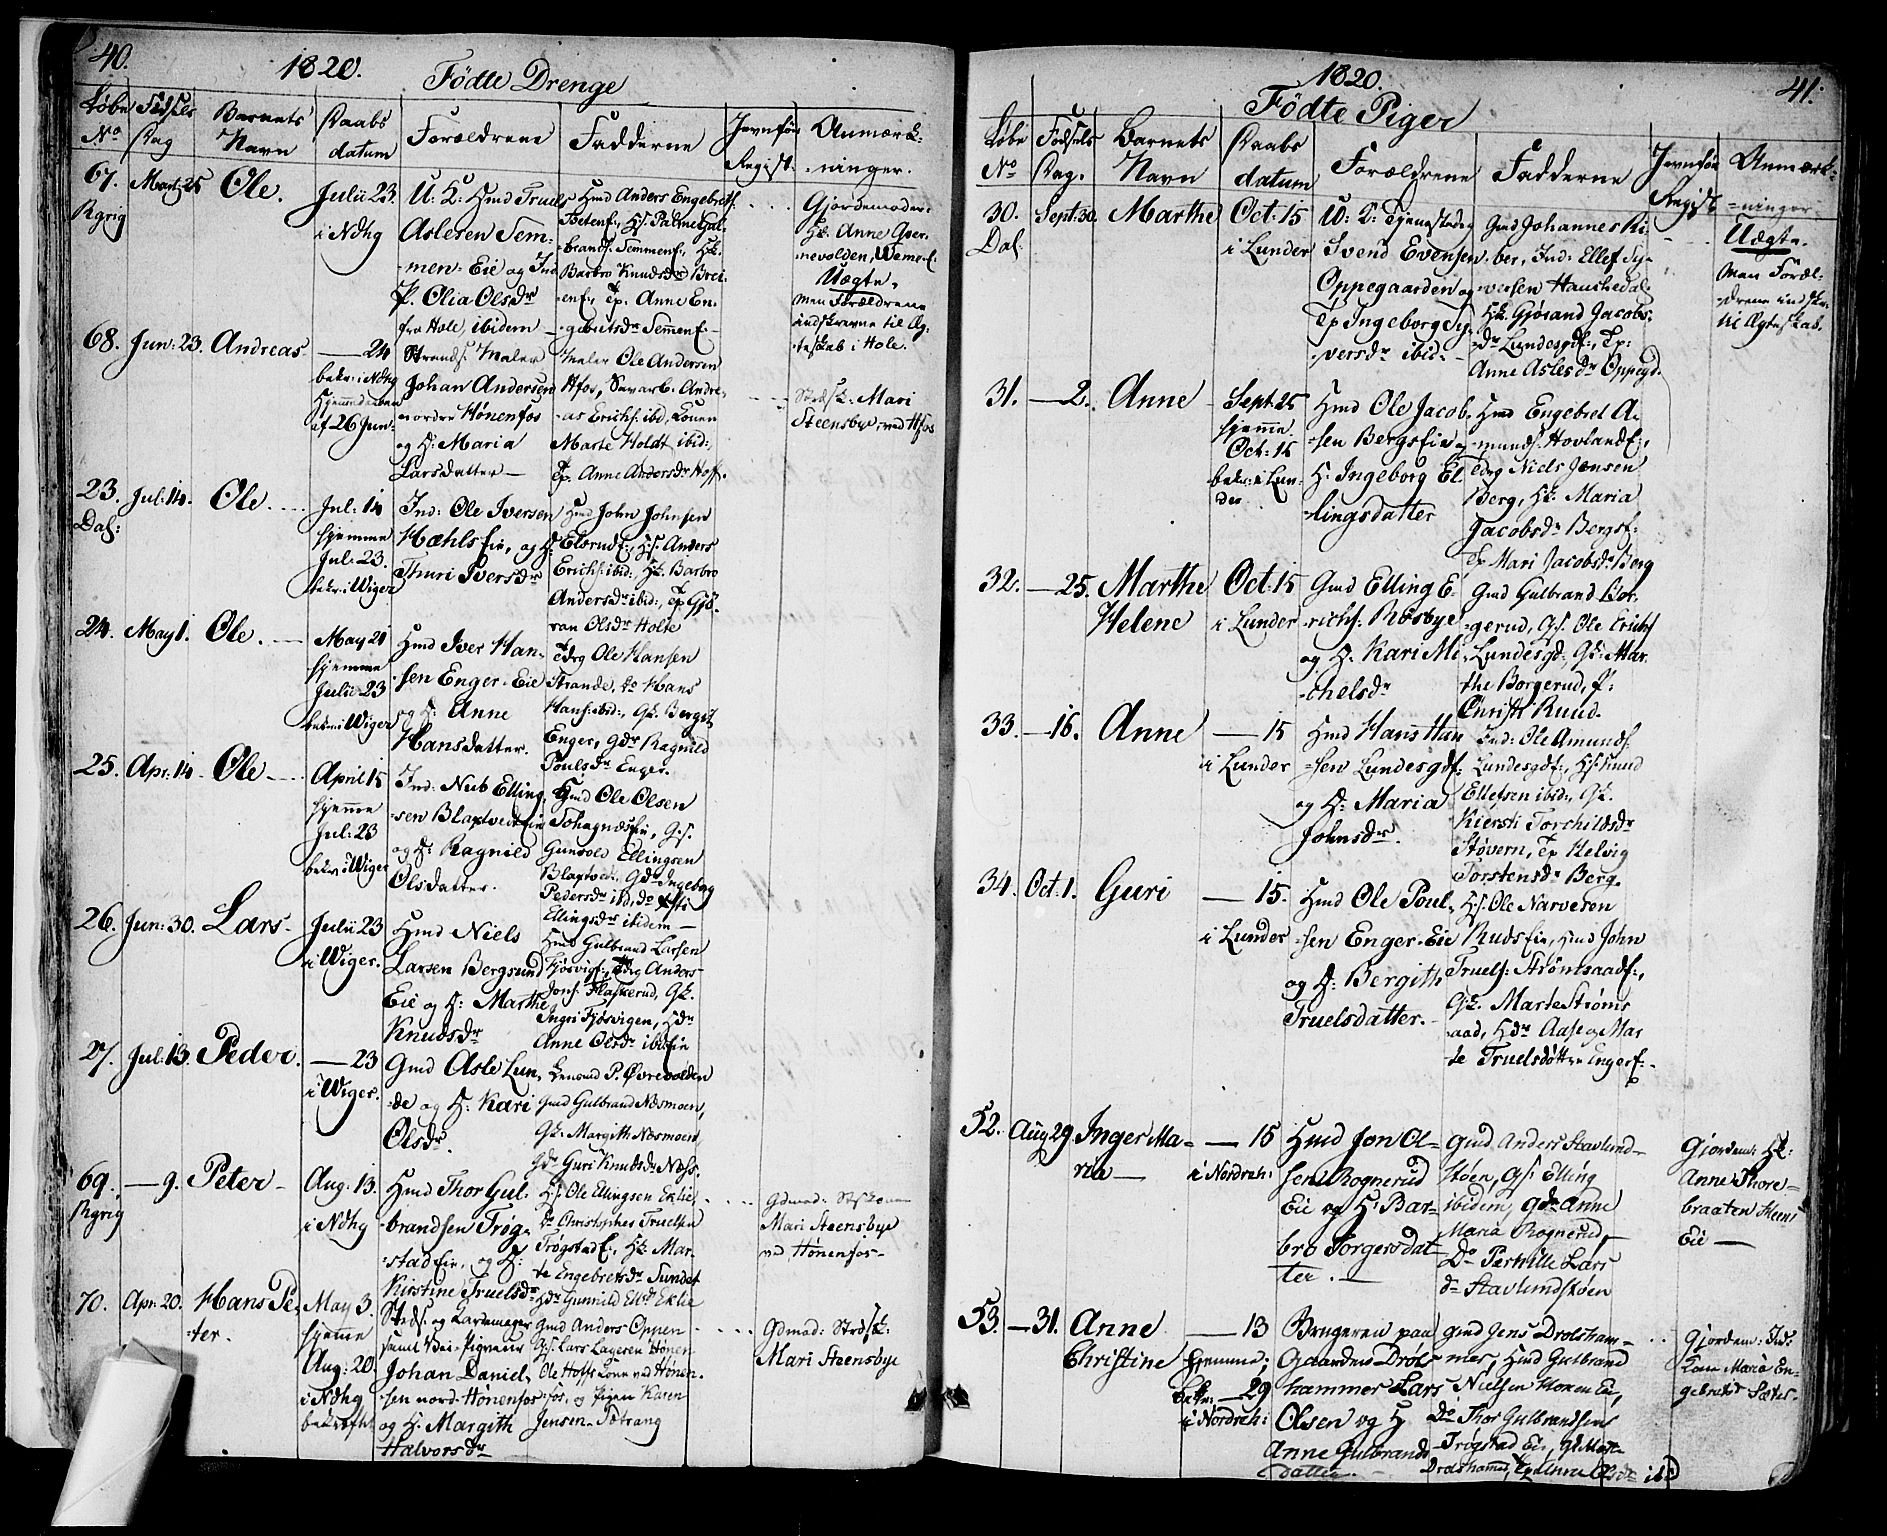 40.
1820. Födte Drenge
Löbe No
Födsels Dag
Barnets Navn
Daabs datum
Forældrene
Fadderne
Jevnför Regist.
Anmærkninger.
67. Rgrig
Mart: 25
Ole.
Julii 23. i Ndhg
Aslesen Semmen-Eie og
P. Olia Olsdr
fra Hole, ibidem
Hmd Anders Engebreth:
Barbro Knudsdr
Tp. Anne Engebretsdr Semmenf.
Gjordemoder:
Uægte,
men Forældrene
indskrevne til Ægteskab i Hole.
68. Jun: 23. Andreas
— 24
bekr: i Ndhg
Hjemmedøben
af 26 Jun:
Strands. Maler
Johan Andersen
nordre Hönenfos
og H: Maria
Larsdatter —
Maler Ole Andersen
Hfos, Andreas Erichs: ibid, Konen
Marte Holdt ibid:
Tp. Anne Andersdr Hoff.
Mari
Steensbye, ved Hfos
23. Dal:
Jul: 14.
Ole.
Jul: 14
hjemme
Jul: 23.
bekr: i Wiger
Ind: Ole Iversen
Mæhlseie, og H:
Thuri Iversdr
Hmd John Johnsen
Elsrudf:, Anders
Erichs: ibid: Barbro
Andersdr ibid:, Tp Gjöran Olsdr Holte
24. May 1. Ole.
May 21
hjemme
Julii 23
bekr: i Wiger
Hmd Iver Hansen Enger-Eie
og H: Anne
Hansdatter.
Ole Hansen
Strande, Do Hans
Hans: ibid:, Gk. Bergit
Enger, Gdr Ragnild
Poulsdr Enger.
25. Apr: 14. Ole
April 15
hjemme
Jul: 23
bekr: i Wiger
Ind: Nub Ellingsen
og H: Ragnild
Olsdatter.
Hmd Ole Olsen
Gunvold Ellingsen
Gdr Ingeborg
Pedersdr ibd,
Ellingsdr ibidem —
26. Jun: 30. Lars
Julii 23
i Wiger.
Hmd Niels
Larsen Bergsund
Eie og H: Marthe
Knudsdr
Hmd Gulbrand Larsen
Anders
Jons: Flaskerud, Gk.
Ingri Fjösvigen, Hdr
Anne Olsdr
27. Jul: 13. Peder.
— 23
i Wiger.
Gmd Asle Lunde og H: Kari
Olsdr.
P. Övrevolden
Gmd Gulbrand Næsmoen,
Gk: Margith Næsmoen,
Gdr Guri Knudsdr Næss:
69. Rgrig
— 9. Peter
Aug: 13.
i Ndhg
Hmd Thor Gulbrandsen Trögstadeie, og H:
Kirstine Truelsdr
Hs: Ole Ellingsen Eklie
Do Christopher Truelsen
Trögstadf:, Hk: Marte Engebretsdr Sundet
Hdr Gunnild Eklie
Gdmod:
Mari Steensbye
ved Hönenfos
70. Apr: 20. Hans Peter.
May 3.
hjemme
Aug: 20.
i Ndhg
bekræftet
Johan Danielsen nord Hönenfos
og H: Margith
Halvorsdr
Gmd Anders Oppen
Gs: Lars Lageren Hönenfos, og Pigen Karen
Jensen Tötrang
Gdmod:
Mari Steensbye
41.
1820.
Födte Piger
Löbe No
Födsels Dag.
Barnets Navn
Daabs datum
Forældrene
Fadderne
Jevnför Regist
Anmærkninger
30. Dal:
Sept: 30. Marthe
Oct: 15
i Lunder
Svend Evensen
Oppegaarden og
Tp Ingeborg Syversdr ibid:
Gmd Johannes Riber, Ind: Ellef Syversen
Hk. Gjörand Jacobsdr Lundesgdf:, Tp:
Anne Aslesdr Oppegd.
Uægte.
Men Forældrene indskr:
til Ægteskab.
31. — 2. Anne
Sept: 25
hjemme
Oct: 15
bekr: i Lunder
Hmd Ole Jacobsen Bergseie og
H. Ingeborg Ellingsdatter
Hmd Engebret Amunds: Hovlandf:,
Niels Jensen
Berg, Hk: Maria
Jacobsdr Bergsf:
Tp Mari Jacobsdr Berg
32. — 25. Marthe Helene
Oct: 15
i Lunder
Gmd Elling Erichs: Rösbye
og H: Kari Michelsdr
Gmd Gulbrand Borgerud, Gs. Ole Erichs
Lundesgd: Gk: Marthe Borgerud, P:
Christi Ruud.
33. — 16. Anne
— 15
i Lunder
Hmd Hans Hansen Lundesgdf:
og H: Maria
Johnsdr.
Ind: Ole Amunds:
Lundesgdf:, Hs: Knud
Ellefsen ibid:, Gk.
Kiersti Torchildsdr
Stövern, Tp Helvig
Torstensdr Berg.
34. Oct: 1. Guri
— 15.
i Lunder
Hmd Ole Poulsen Enger-Eie
og H: Bergith
Truelsdatter.
Hs: Ole Narveren
Rudseie, Hmd John
Truels: Strömsaadf:,
Gk. Marte Strömsaad, Hdr Aase og Marte Truelsdöttre Engerf:
52. Aug 29. Inger Maria —
— 15
i Nordreh:
Hmd Jon Olsen Rognerud
Eie og H: Barbro Torgersdatter. —
Gmd Anders Stavlundstöen, Gs: Elling
ibidem, Gdr Anne
Maria Rognerud,
Do Pernille Larsdr Stavlundstöen
Gjordem: Hk:
Anne Thorebraaten Steens
Eie —
53. — 31. Anne Christine
— 13
hjemme;
bekr: — 29
i Nordreh:
Brugeren paa
Gaarden Drolshammer Lars
Olsen og H.
Anne Gulbrandsdatter.
Gmd Jens Drolshammer, Hmd Gulbrand
Nielsen Honen Eie,
Do Thor Gulbrandsens
Trögstad Eie, Gk Marte
Drolshammer, Tp Anne Olsdr ibd
Gjordem:
Kone Maria Engebretsd Sætre.